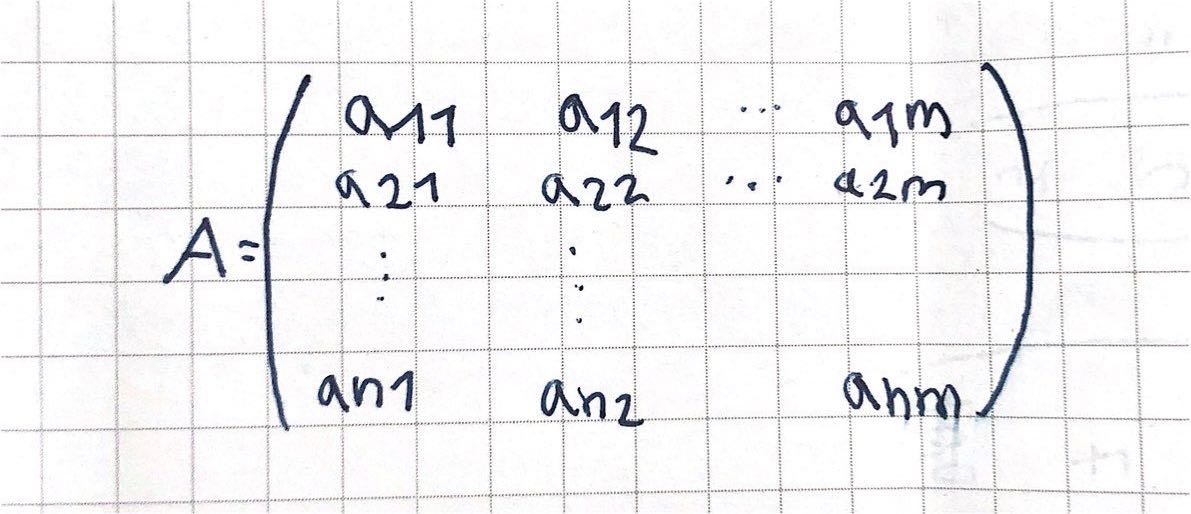 a11 a12 ... a1m
a21 a22 ... a2m
A= ⋮ ⋮
an1 an2 anm